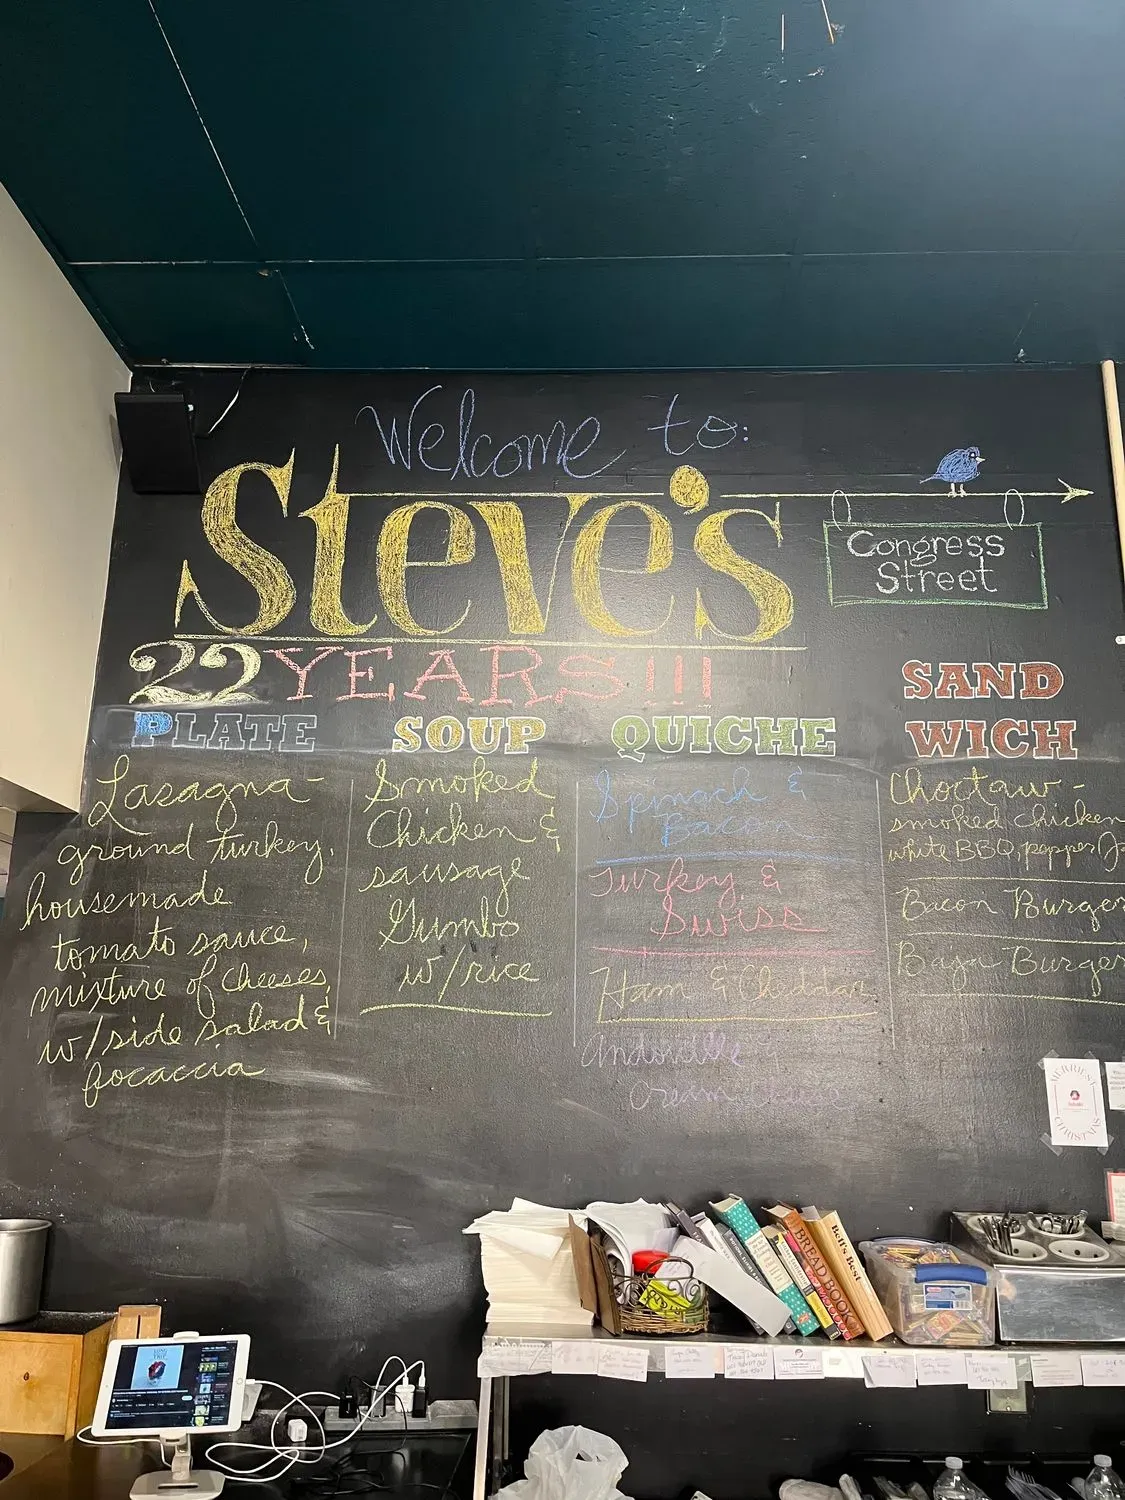 Welcome to:
Steve's
Congress
Street
22 YEARS!!!
PLATE
Lasagna -
ground turkey,
housemade
tomato sauce,
mixture of cheeses,
w/side salad &
focaccia
SOUP
Smoked
Chicken &
sausage
Gumbo
w/rice
QUICHE
Spinach &
Bacon
Turkey &
Swiss
Ham & Cheddar
Andouille &
Cream Cheese
SAND
WICH
Choctaw -
smoked chicken
white BBQ, pepper Ja
Bacon Burger
Baja Burger
MERRIEST
CHRISTMAS
BREAD BOOK
Bell's Best